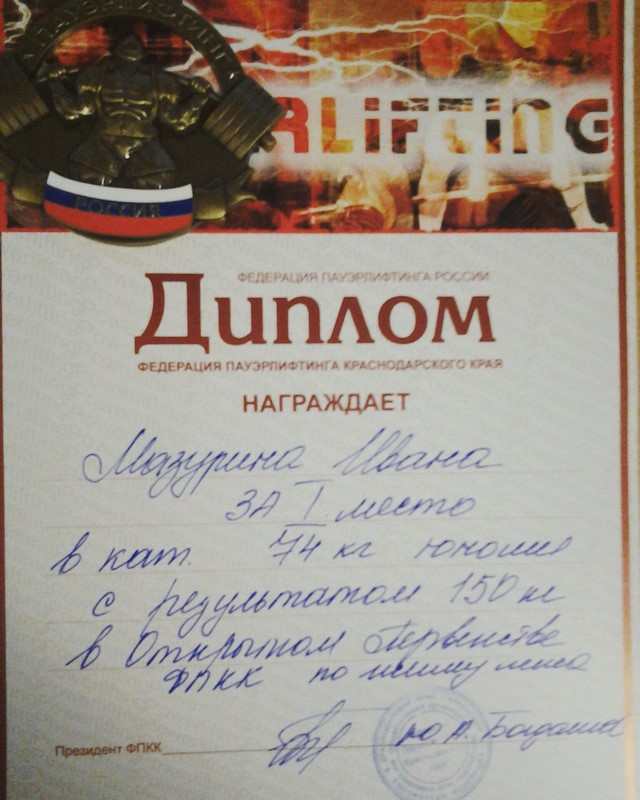 ПАУЭРЛИФТИНГ
RLIFTING
РОССИЯ
ФЕДЕРАЦИЯ ПАУЭРЛИФТИНГА РОССИИ
Диплом
ФЕДЕРАЦИЯ ПАУЭРЛИФТИНГА КРАСНОДАРСКОГО КРАЯ
НАГРАЖДАЕТ
Мазурина Ивана
ЗА I место
в кат. 74 кг юноши
с результатом 150 кг
в Открытом Первенстве
ФПКК по жиму лежа
Президент ФПКК